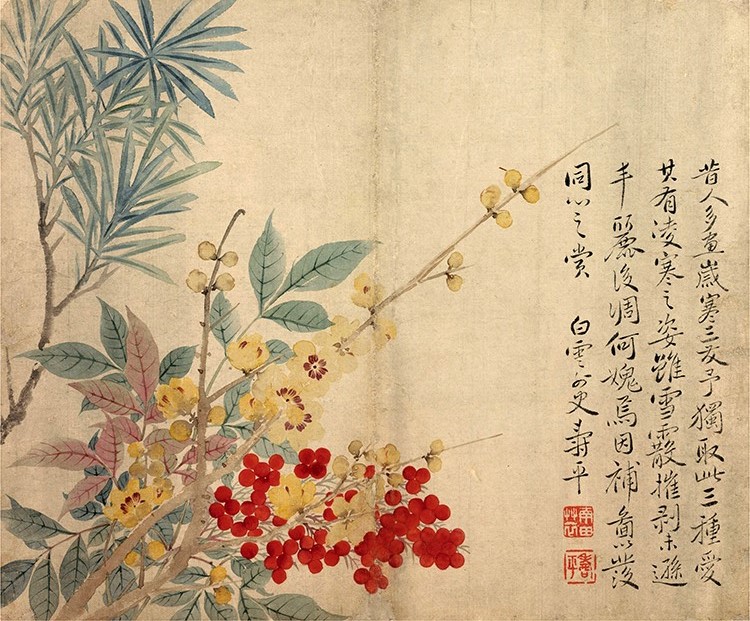 昔人多畫歲寒三友予獨取此三種愛
其有凌寒之姿雖雪霰摧剥未遜
丰麗後凋何媿焉因補圖以發
同心之賞 白雲外史壽平
南田草衣
壽平